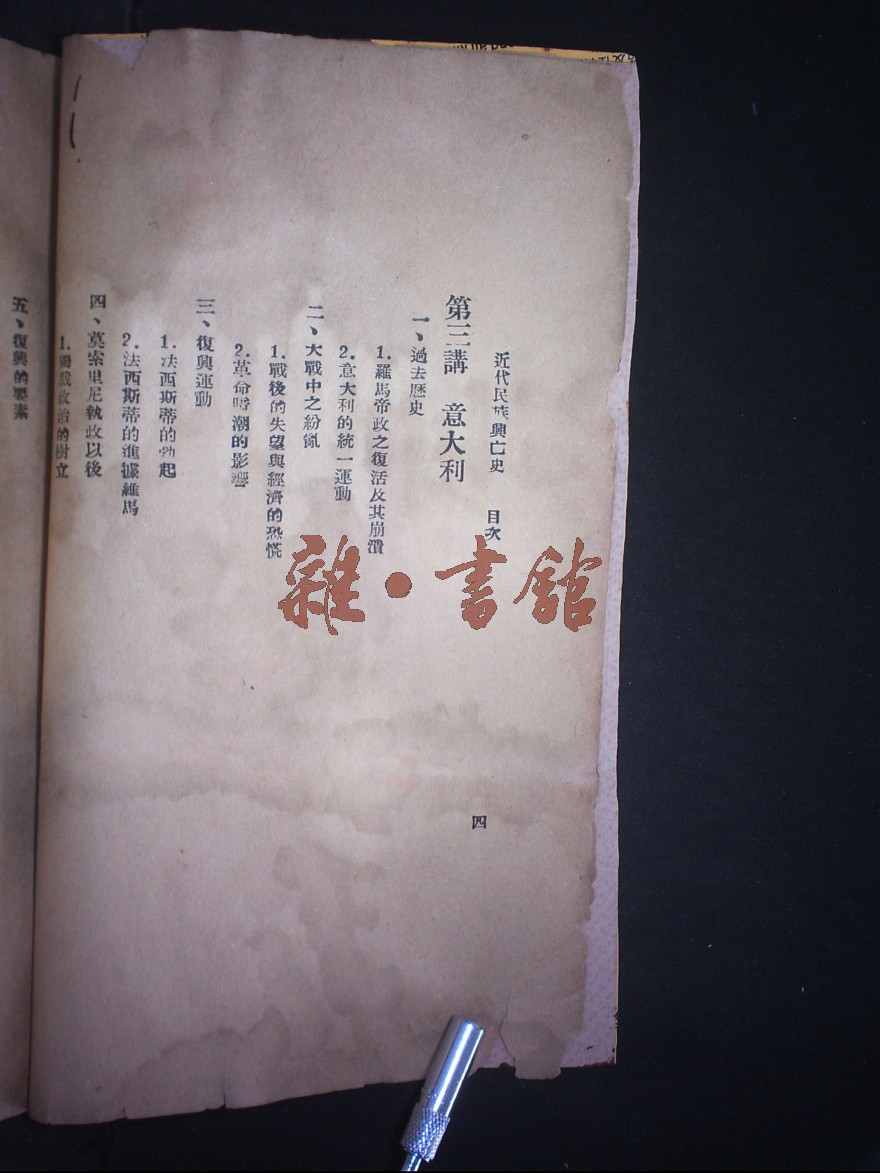 近代民族興亡史 目次
四
第三講 意大利
一、過去歷史
1.羅馬帝政之復活及其崩潰
2.意大利的統一運動
二、大戰中之紛亂
1.戰後的失望與經濟的恐慌
2.革命暗潮的影響
三、復興運動
1.法西斯蒂的勃起
2.法西斯蒂的進據羅馬
四、莫索里尼執政以後
1.獨裁政治的樹立
五、復興的要素
雜·書館